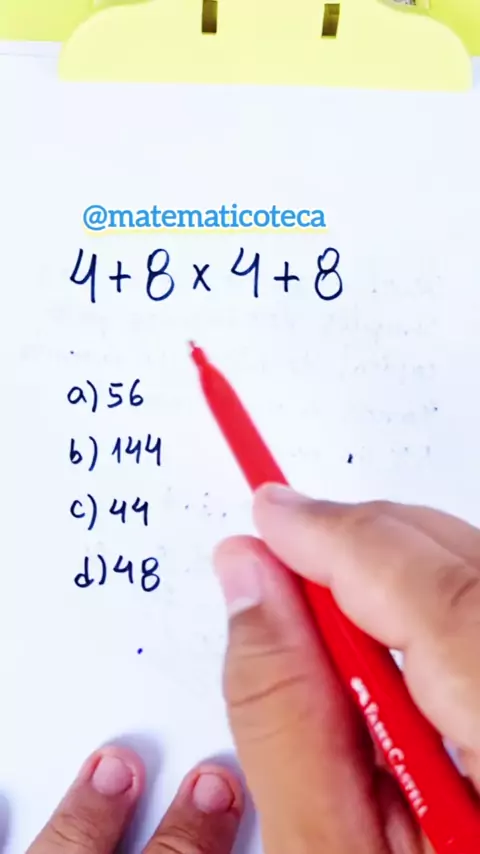 @matematicoteca
4+8×4+8
a) 56
b) 144
c) 44
d) 48
FABER CASTELL